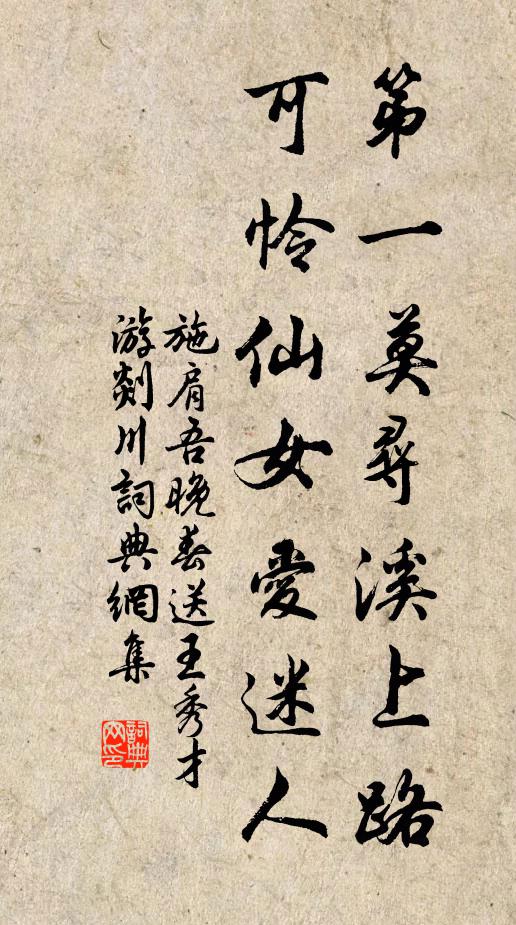 第一莫尋溪上路
可怜仙女愛迷人
施肩吾晚春送王秀才
游剡川詞典網集
詞典网印